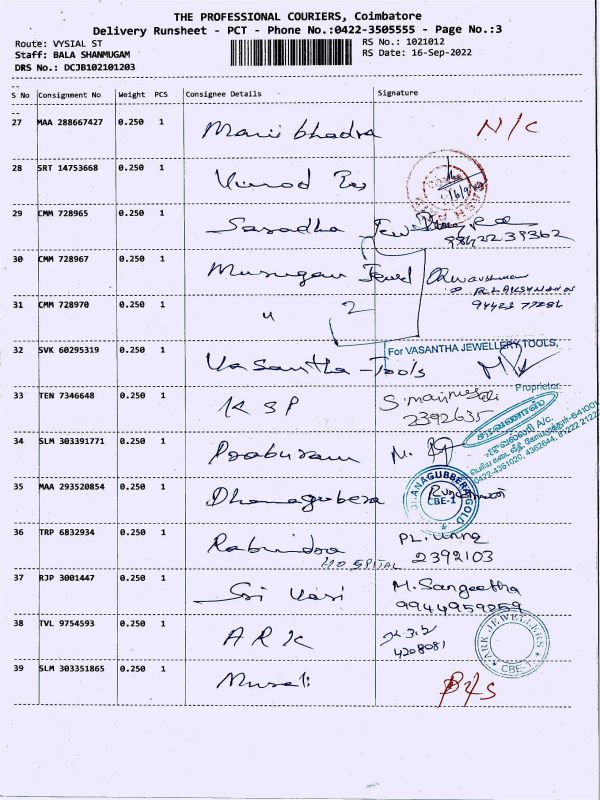 THE PROFESSIONAL COURIERS, Coimbatore
Delivery Runsheet - PCT - Phone No.:0422-3505555 - Page No.:3
Route: VYSIAL ST
RS No.: 1021012
Staff: BALA SHANMUGAM
RS Date: 16-Sep-2022
DRS No.: DCJB102101203
S No Consignment No Weight PCS Consignee Details Signature
27 MAA 288667427 0.250 1 N/C
28 SRT 14753668 0.250 1
29 CMM 728965 0.250 1 Saradha
9842239362
30 CMM 728967 0.250 1 Murugan Jewel
31 CMM 728970 0.250 1 " 2
32 SVK 60295319 0.250 1 Vasantha -Tools
For VASANTHA JEWELLERY TOOLS,
Proprietor.
33 TEN 7346648 0.250 1 KSP
2392635
34 SLM 303391771 0.250 1 Praburam
35 MAA 293520854 0.250 1 Dhanagubera
DHANAGUBBERA GOLD
CBE-1
36 TRP 6832934 0.250 1 Rabindra
HOSPITAL 2392103
37 RJP 3001447 0.250 1 Sri Vasi M. Sangeetha
9944959259
38 TVL 9754593 0.250 1 ARK
4208081
ARK JEWELLERS
CBE-1
39 SLM 303351865 0.250 1 Murali